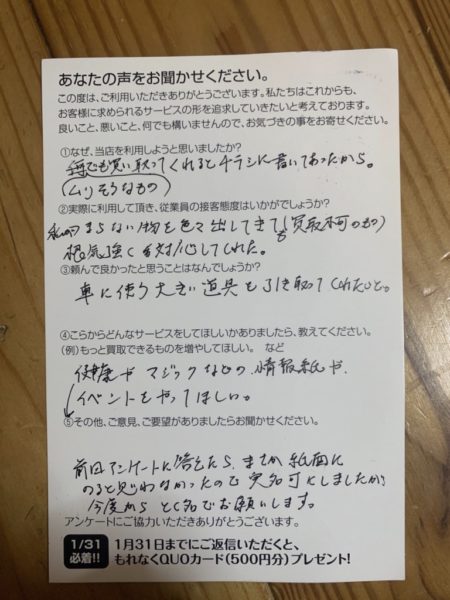 あなたの声をお聞かせください。
この度は、ご利用いただきありがとうございます。私たちはこれからも、
お客様に求められるサービスの形を追求していきたいと考えております。
良いこと、悪いこと、何でも構いませんので、お気づきの事をお寄せください。
①なぜ、当店を利用しようと思いましたか?
何でも買い取ってくれるとチラシに書いてあったから。
(ムリそうなもの)
②実際に利用して頂き、従業員の接客態度はいかがでしょうか?
まらない物を色々出してきても(買取不可のもの)
根気強く対応してくれた。
③頼んで良かったと思うことはなんでしょうか?
車に使う大きい道具も引き取ってくれたこと。
④こらからどんなサービスをしてほしいかありましたら、教えてください。
(例)もっと買取できるものを増やしてほしい。 など
健康やマジックなどの情報紙や、
イベントをやってほしい。
⑤その他、ご意見、ご要望がありましたらお聞かせください。
前回アンケートに答えたら、まさか紙面に
のると思わなかったので実名可にしましたが、
今度から とく名でお願いします。
アンケートにご協力いただきありがとうございます。
1/31
必着!!
1月31日までにご返信いただくと、
もれなくQUOカード(500円分)プレゼント!